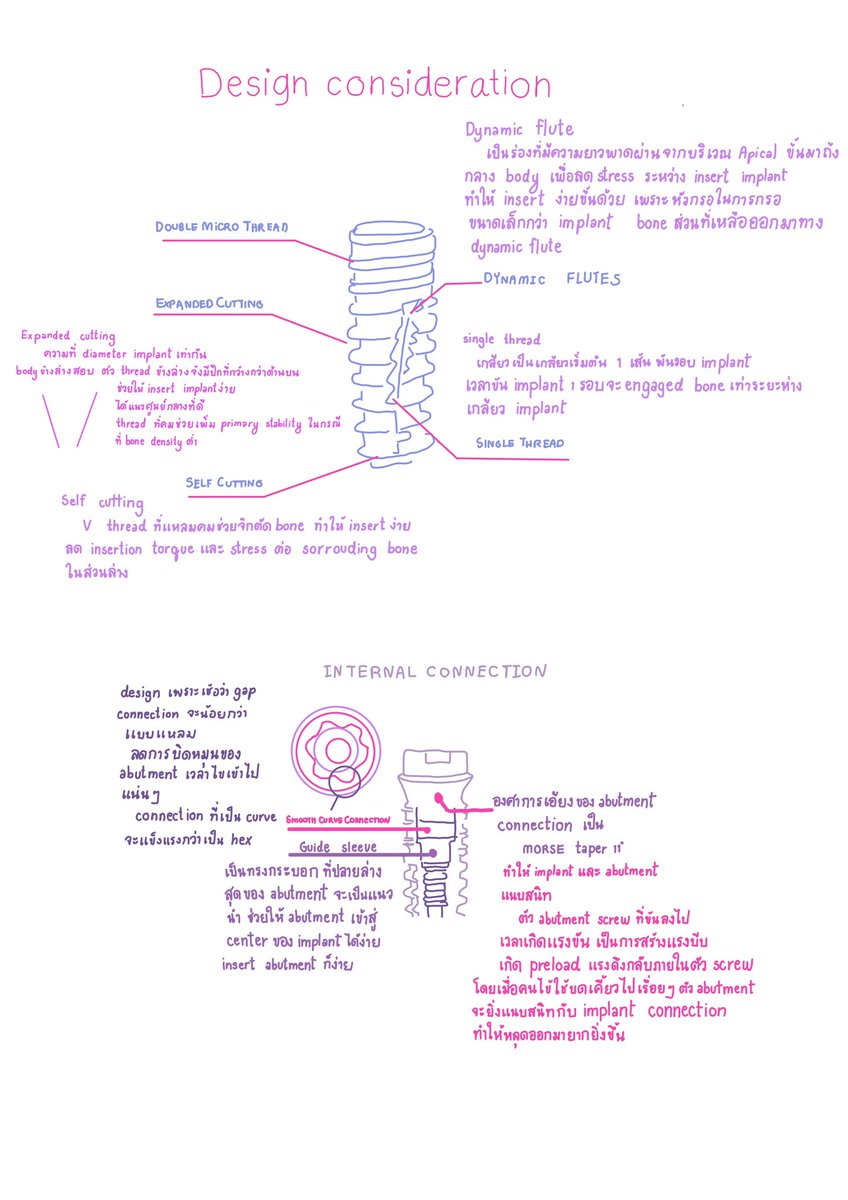 Design consideration
Dynamic flute
เป็นร่องที่มีความยาวพาดผ่านจากบริเวณ Apical ขึ้นมาถึง
กลาง body เพื่อลด stress ระหว่าง insert implant
ทำให้ insert ง่ายขึ้นด้วย เพราะหัวกรอในการกรอ
ขนาดเล็กกว่า implant bone ส่วนที่เหลือออกมาทาง
dynamic flute
DOUBLE MICRO THREAD
DYNAMIC FLUTES
EXPANDED CUTTING
Expanded cutting
ความที่ diameter implant เท่ากัน
body ข้างล่างสอบ ตัว thread ข้างล่างจึงมีปีกที่กว้างกว่าด้านบน
ช่วยให้ insert implant ง่าย
ได้แนวศูนย์กลางที่ดี
thread ที่คมช่วยเพิ่ม primary stability ในกรณี
ที่ bone density ต่ำ
single thread
เกลียวเป็นเกลียวเริ่มต้น 1 เส้น พันรอบ implant
เวลาขัน implant 1 รอบจะ engaged bone เท่าระยะห่าง
เกลียว implant
SINGLE THREAD
SELF CUTTING
Self cutting
V thread ที่แหลมคมช่วยจิกตัด bone ทำให้ insert ง่าย
ลด insertion torque และ stress ต่อ sorrouding bone
ในส่วนล่าง
INTERNAL CONNECTION
design เพราะเชื่อว่า gap
connection จะน้อยกว่า
แบบแหลม
ลดการบิดหมุนของ
abutment เวลาไขเข้าไป
แน่นๆ
connection ที่เป็น curve
จะแข็งแรงกว่าเป็น hex
SMOOTH CURVE CONNECTION
Guide sleeve
เป็นทรงกระบอก ที่ปลายล่าง
สุดของ abutment จะเป็นแนว
นำ ช่วยให้ abutment เข้าสู่
center ของ implant ได้ง่าย
insert abutment ก็ง่าย
องศาการเอียงของ abutment
connection เป็น
MORSE taper 11°
ทำให้ implant และ abutment
แนบสนิท
ตัว abutment screw ที่ขันลงไป
เวลาเกิดแรงขัน เป็นการสร้างแรงบีบ
เกิด preload แรงดึงกลับภายในตัว screw
โดยเมื่อคนไข้ใช้บดเคี้ยวไปเรื่อยๆ ตัว abutment
จะยิ่งแนบสนิทกับ implant connection
ทำให้หลุดออกมายากยิ่งขึ้น